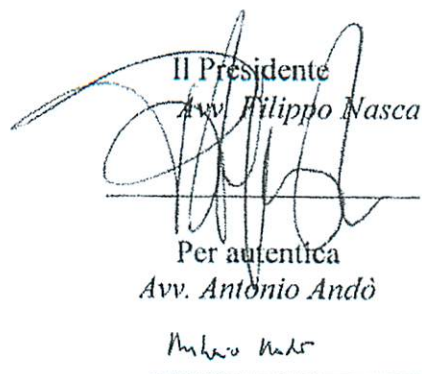 Il Presidente
Avv. Filippo Nasca
Per autentica
Avv. Antonio Andò
Antonio Andò